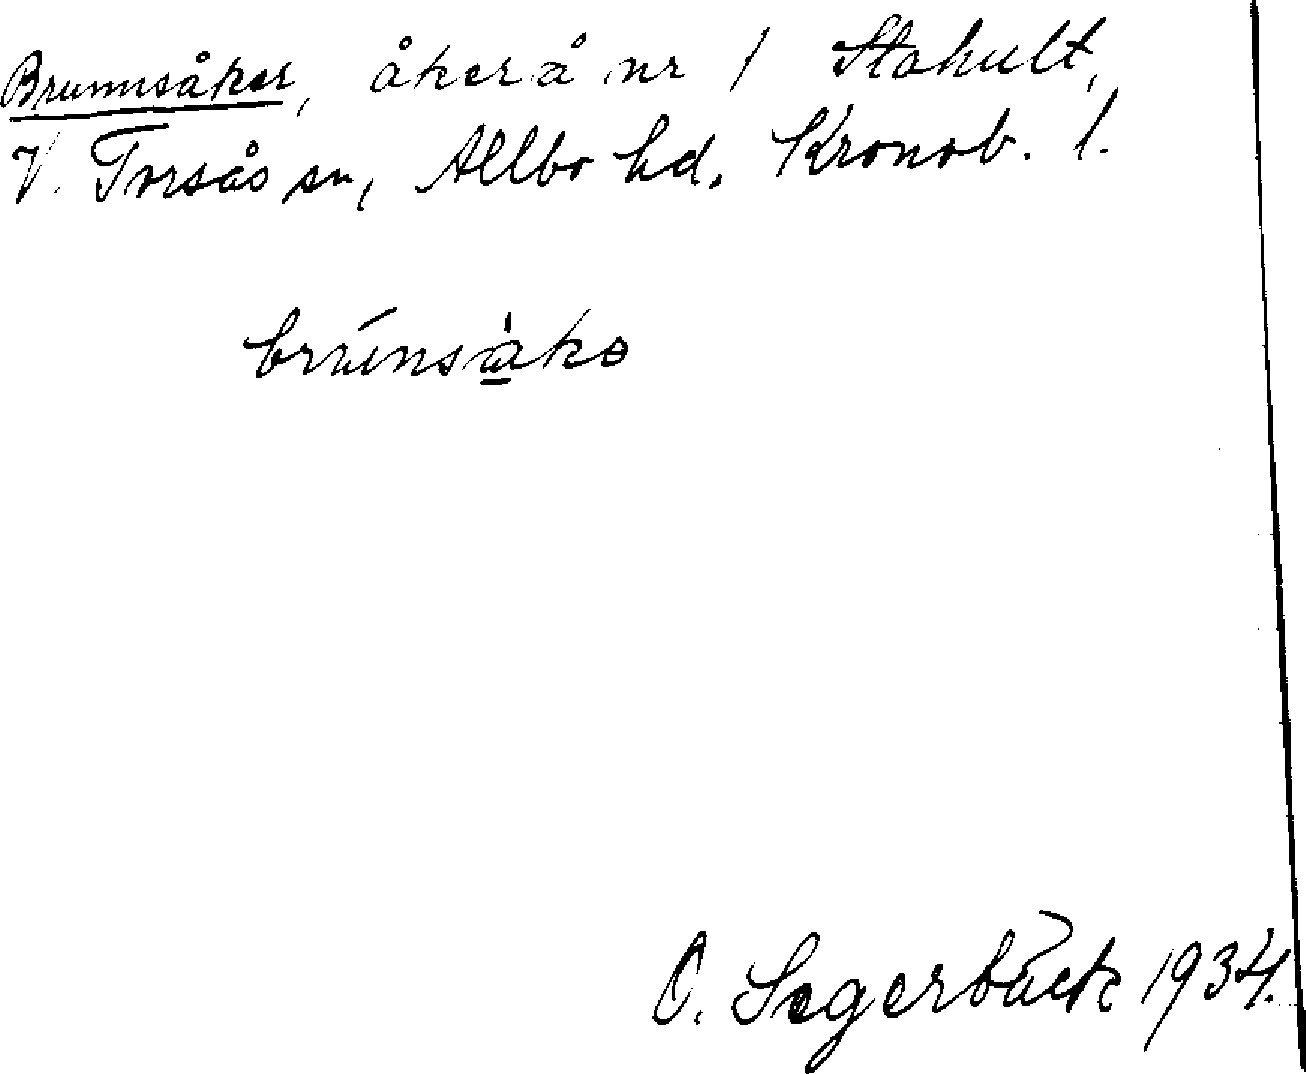 Brunnsåker, åker å nr 1 Stahult,
V. Torsås sn, Allbo hd. Kronob. l.
O. Segerbäck 1934.